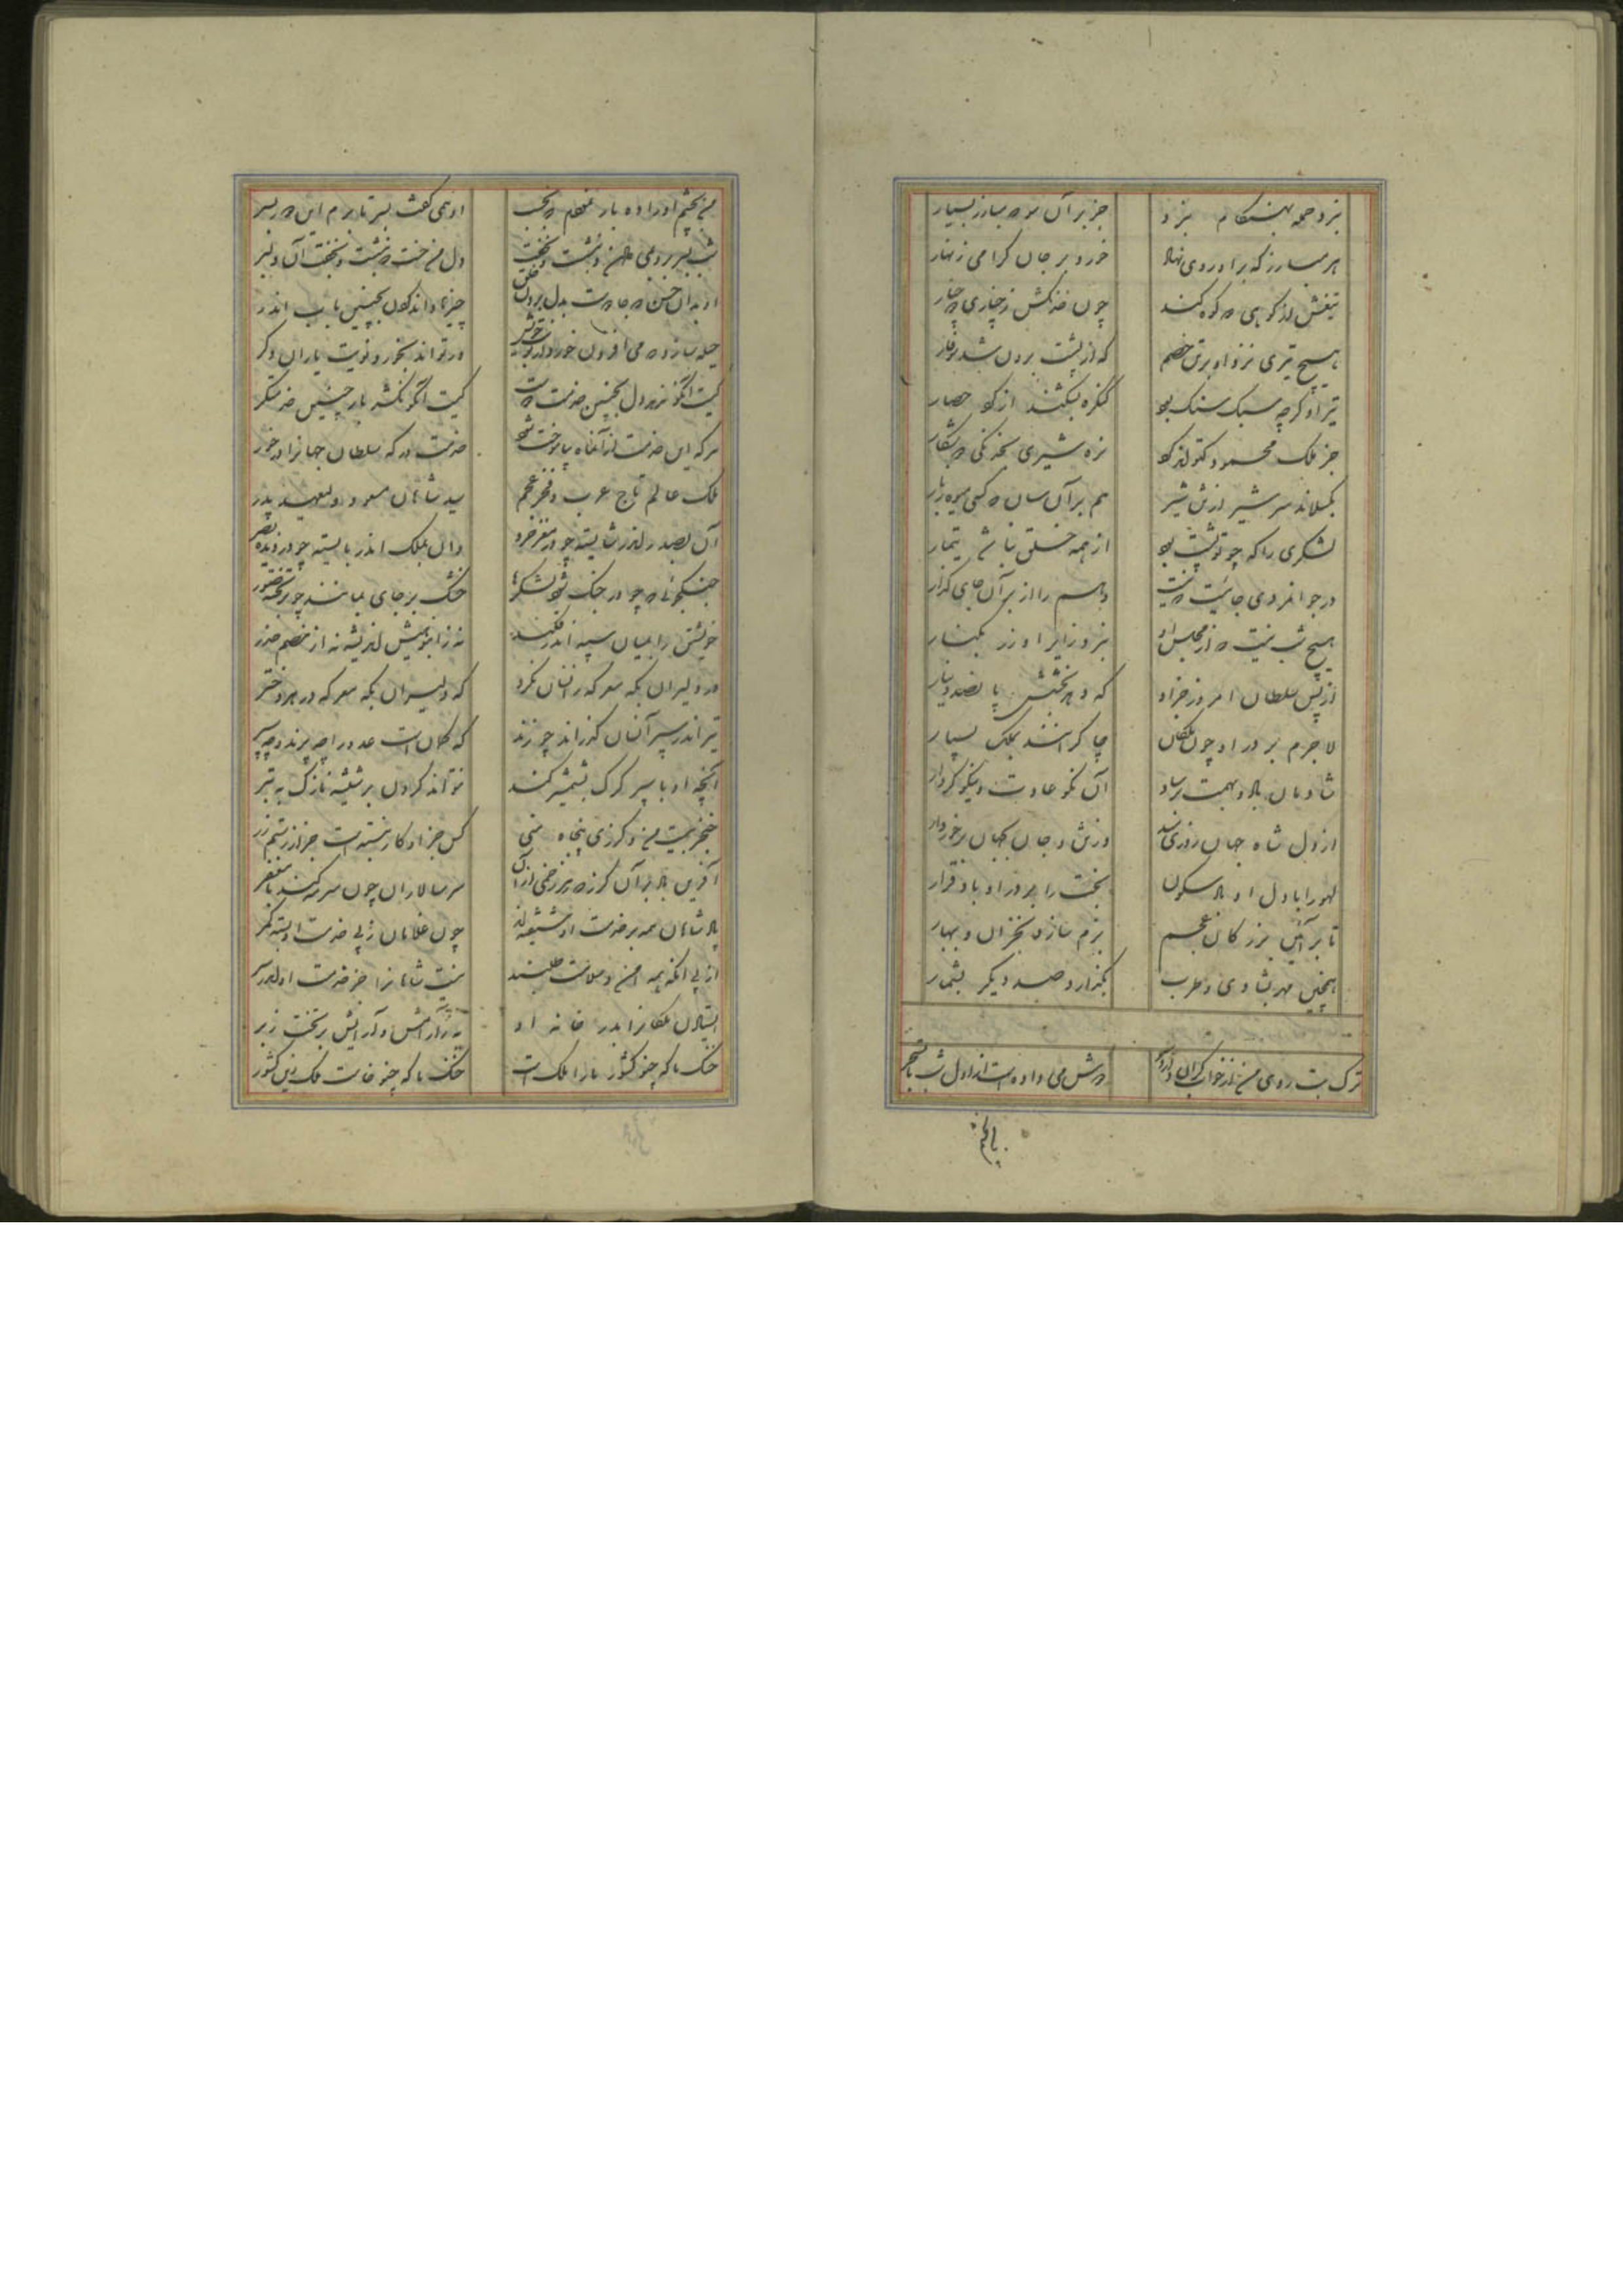 نزد حمله بهنگام نبرد جز بر آن مبارز بسیار
هر مبارز که بر او روی نهاد خورد بر جان گرامی زنهار
تیغش از کوهی کوه کند چون خدنگش ز چناری چنار
هیچ تیری نزد او بر تن خصم که از پشت برون شد سوفار
تیر او گرچه سبک سنگ بود کنگره بشکند از کوه حصار
جز ملک محمود که تواند کرد نره شیری بخدنگی شکار
بگسلاند سر شیر از تن شیر هم بر آن سان که کسی میوه ز بار
لشکری را که چو تو پشت بود از همه خلق نباشد تیمار
در جوانمردی جائیست که نیست وهم را از بر آن جای گذار
هیچ شب نیست که از مجلس او نبرد زایر او زر بکنار
از پس سلطان امروز جز او که دهد بخشش پانصد دینار
لاجرم بر در او چون ملکان چاکرانند ملک بسیار
شادمان باد و بهمت برساد آن نکو عادت و نیکو کردار
از دل شاه جهان روزی مند وز تن و جان جهان برخوردار
لهو را با دل او باد سکون بخت را بر در او باد قرار
تا بر آئین بزرگان عجم بزم سازد بخزان و بهار
همچنین مهر بشادی و طرب بگذارد و صد دیگر بشمار
ترک بت روی من از خواب گران دارد سر دوش می داده است از اول شب تا بسحر
من بچشم او را ده بار نمودم که بخسب او همی گفت بسر تا برم این دور بسر
شب بسر برد بمی دادن و ننشست و نخفت دل من خست که ننشست و نخفت آن دلبر
از بدان حسن بدل بردن خلق چیزها داند کردن بچنین باب اندر
حیله سازد که می افزون خورد از نوبت خویش ور تواند بخورد نوبت یاران دگر
کیست آنکو ندهد دل بچنین خدمت دوست کیست آنکو نکشد بار چنین خدمتگر
هر که این خدمت از آن ماه بیاموخت شود خدمت درگه سلطان جهان را در خور
ملک عالم تاج عرب و فخر عجم سید شاهان مسعود ولیعهد پدر
آن بصدر اندر شایسته چو در مغز خرد وان بملک اندر بایسته چو در دیده بصر
جنگجوئی که چو در جنگ شود لشکرها خشک بر جای بمانند چو بر تخته صور
خویشتن را بمیان سپه اندر فکند نه ز انبوهیش اندیشه نه از خصم حذر
مرد و لیران بگه معرکه زانسان نگرد که دلیران بگه معرکه در مرد و حذر
تیر اندر سپر آسان گذراند چو زند که کمان است عدو را چه پرند و چه سپر
آنچه او با سپر کرگ بشمشیر کند نتواند کردن بر شیشه نازک به تبر
خنجر بیست منی گرزی پنجاه منی کس جز او کار نبسته است جز از رستم زر
آفرین باد بر آن گرز که بر زخمی از آن سر سالاران چون سرمه کند با مغفر
پادشاهان همه بر خدمت او شیفته اند چون غلامان ز پی خدمت او بسته کمر
از پی آنکه همه امن و سلامت طلبند نیست شاهان را جز خدمت او اندر سر
ایستادن ملکان را بدر خانه او به ز آرامش و آسایش بر تخت بزر
خنک ما که چنو کشور ما را ملک است خنک ما که چنو خاست ملک زین کشور